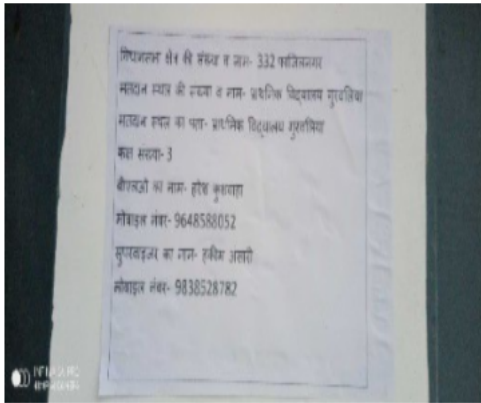 विधानसभा क्षेत्र की संख्या व नाम- 332 फाजिलनगर
मतदान स्थल की संख्या व नाम- प्राथमिक विद्यालय गुरवलिया
मतदान स्थल का पता- प्राथमिक विद्यालय गुरवलिया
कक्ष संख्या- 3
बीएलओ का नाम- हरेश कुशवाहा
मोबाइल नंबर- 9648588052
सुपरवाइजर का नाम- हकीम अंसारी
मोबाइल नंबर- 9838528782